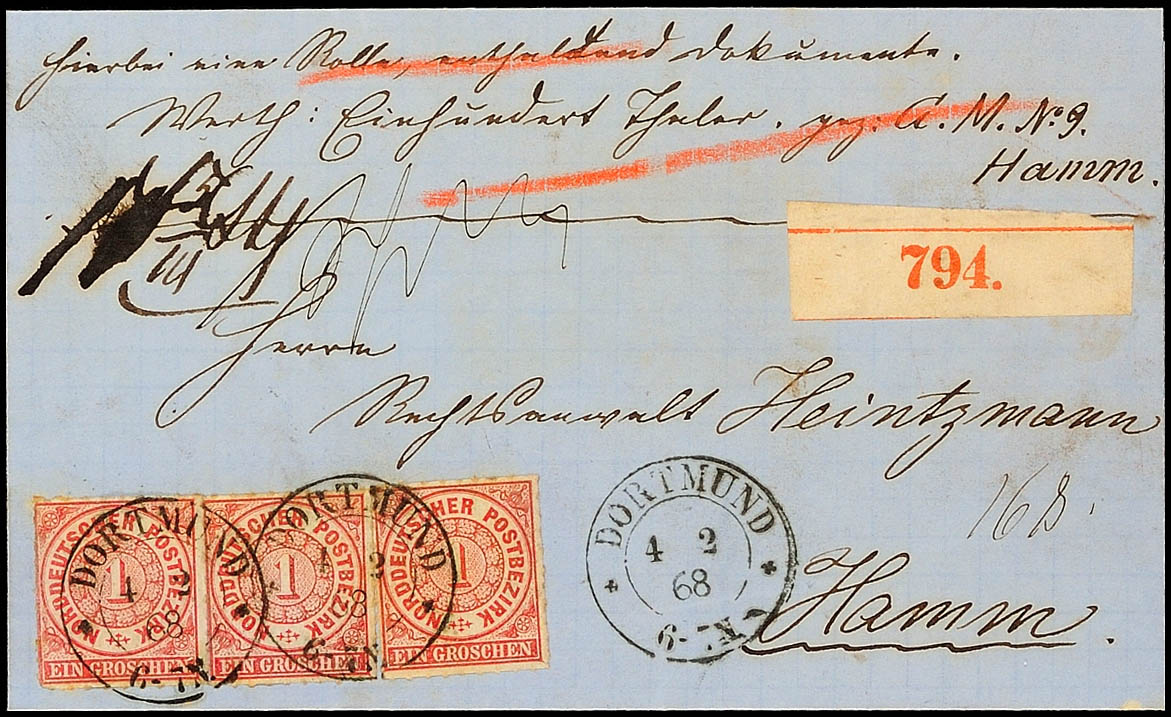 Hierbei eine Rolle, enthaltend Dokumente.
Werth: Einhundert Thaler. gez: A. M. No 9.
Hamm.
794.
Herrn
Rechtsanwalt Heintzmann
168.
Hamm.
DORTMUND
4 2
68
6-7N
NORDDEUTSCHER POSTBEZIRK
1
EIN GROSCHEN
DORTMUND
4 2
68
6-7N
NORDDEUTSCHER POSTBEZIRK
1
EIN GROSCHEN
NORDDEUTSCHER POSTBEZIRK
1
EIN GROSCHEN
DORTMUND
4 2
68
6-7N